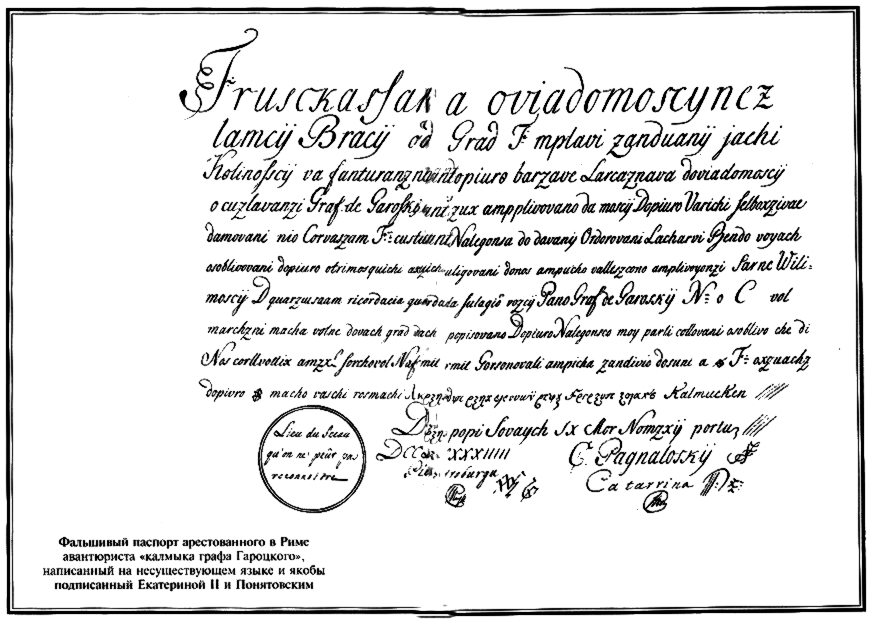 Frusckassan a oviadomoscynez
lamcij Bracij od Grad F. mplavi zanduanij jachi
Kolinosscij va fanturanzn dopiuro barzave Larcaznava doviadomoscij
o cuzlavanzi Graf. de Garoski zux ampplivovano da moxij Dopiuro Varichi selboxzivae
damovani nio Corvaszam F. custianni Nalegonsa do davanij Ordorovani Lacharvi Bendo voyach
osoblivovani dopiuro otrimosquichi aligovani donos ampucho vallescono amplivoyonzi Sarne Wili=
moscij D quarzusaam ricordacia quardada sulagiō rozcij Pano Graf de Garoskij N: o C vol
marchzni macha volne dovach grad dach popisovano Dopiuro Nalegonsco moy parli collovani osoblivo che di
Nos corllvottix sorchovol rmit Gorsonovali ampicka zandivio dosuni a F: oxzuachz
dopivro macho vaschi rosmachi Kalmucken
popi Sovaych Sx Mor Nomzxij portuz
Lieu du Sceau
qu'on ne peûr pas
reconnoitre
DCC XXXIIII
C. Pagnaloskij
troburga
Catarrina
Фальшивый паспорт арестованного в Риме
авантюриста «калмыка графа Гароцкого»,
написанный на несуществующем языке и якобы
подписанный Екатериной II и Понятовским